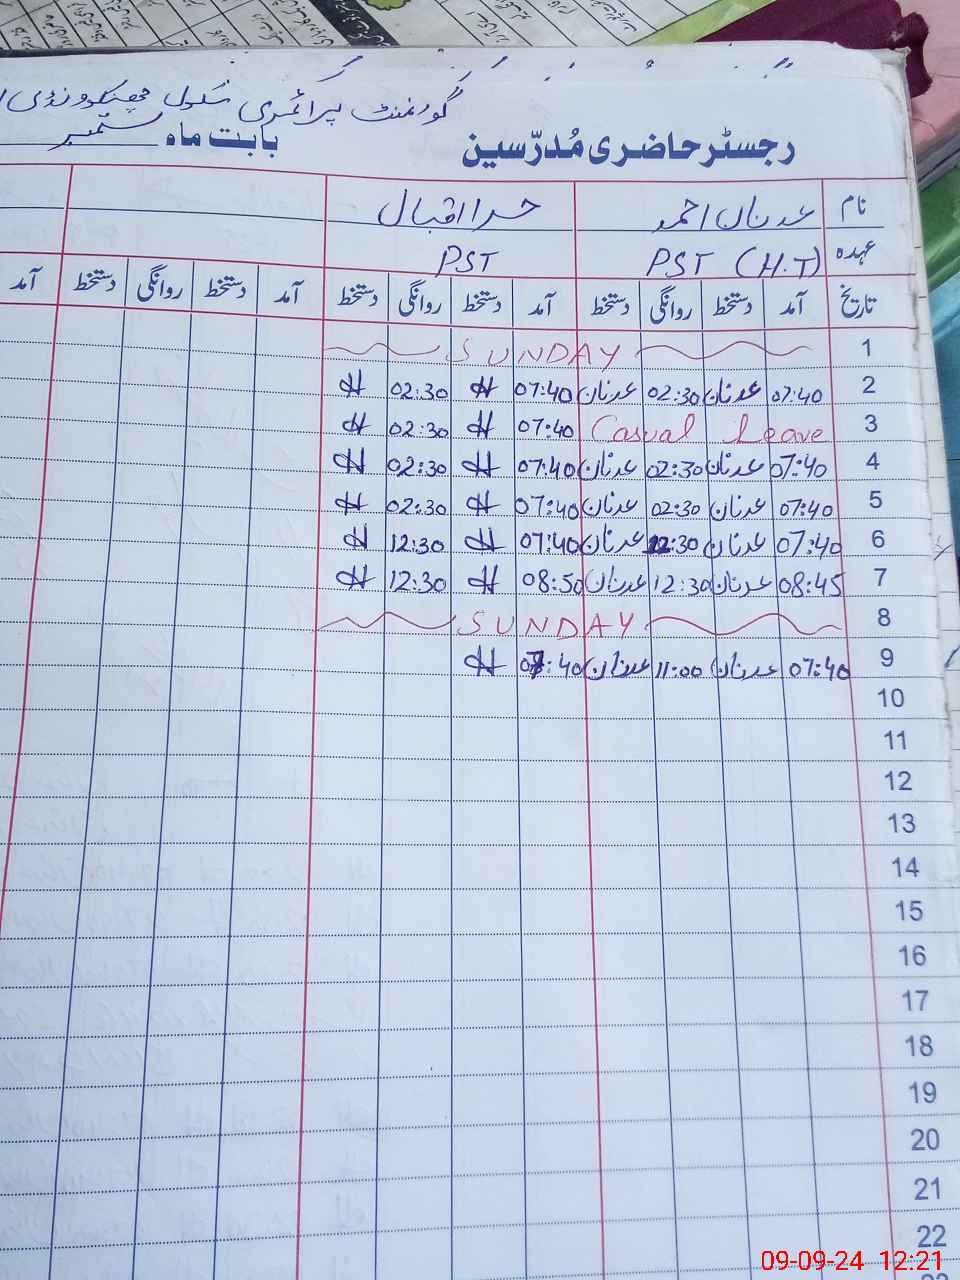 گورنمنٹ پرائمری سکول
رجسٹر حاضری مُدرّسین بابت ماہ ستمبر
نام عدنان احمد حرا اقبال
عہدہ PST (H.T) PST
تاریخ آمد دستخط روانگی دستخط آمد دستخط روانگی دستخط آمد دستخط روانگی دستخط آمد
1 SUNDAY
2 07:40 عدنان 02:30 عدنان 07:40 H 02:30 H
3 Casual Leave 07:40 H 02:30 H
4 07:40 عدنان 02:30 عدنان 07:40 H 02:30 H
5 07:40 عدنان 02:30 عدنان 07:40 H 02:30 H
6 07:40 عدنان 12:30 عدنان 07:40 H 12:30 H
7 08:45 عدنان 12:30 عدنان 08:50 H 12:30 H
8 SUNDAY
9 07:40 عدنان 11:00 عدنان 07:40 H
10
11
12
13
14
15
16
17
18
19
20
21
22
09-09-24 12:21